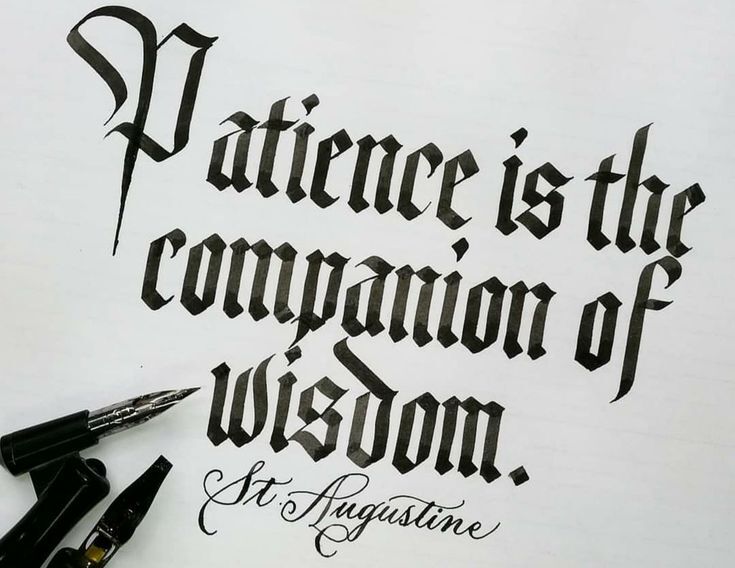 Patience is the
companion of
wisdom.
St. Augustine